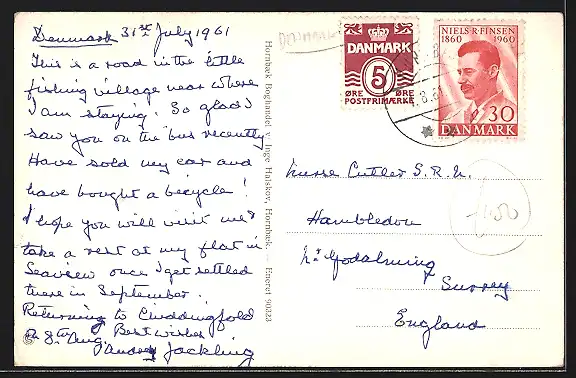 Denmark 31st July 1961
This is a road in the little
fishing village near where
I am staying. So glad I
saw you on the bus recently
Have sold my car and
have bought a bicycle!
I hope you will visit me &
take a rest at my flat in
Seaview once I get settled
there in September.
Returning to Chiddingfold
on 8th Aug. Best wishes
Audrey Jackling
Hornbæk Boghandel v. Inge Halskov, Hornbæk. — Eneret 90223
DENMARK
DANMARK
5
ØRE ØRE
POSTFRIMÆRKE
NIELS R. FINSEN
1860 1960
30
DANMARK
Nurse Cutler S.R.N.
Hambledon
Nr Godalming
Surrey
England